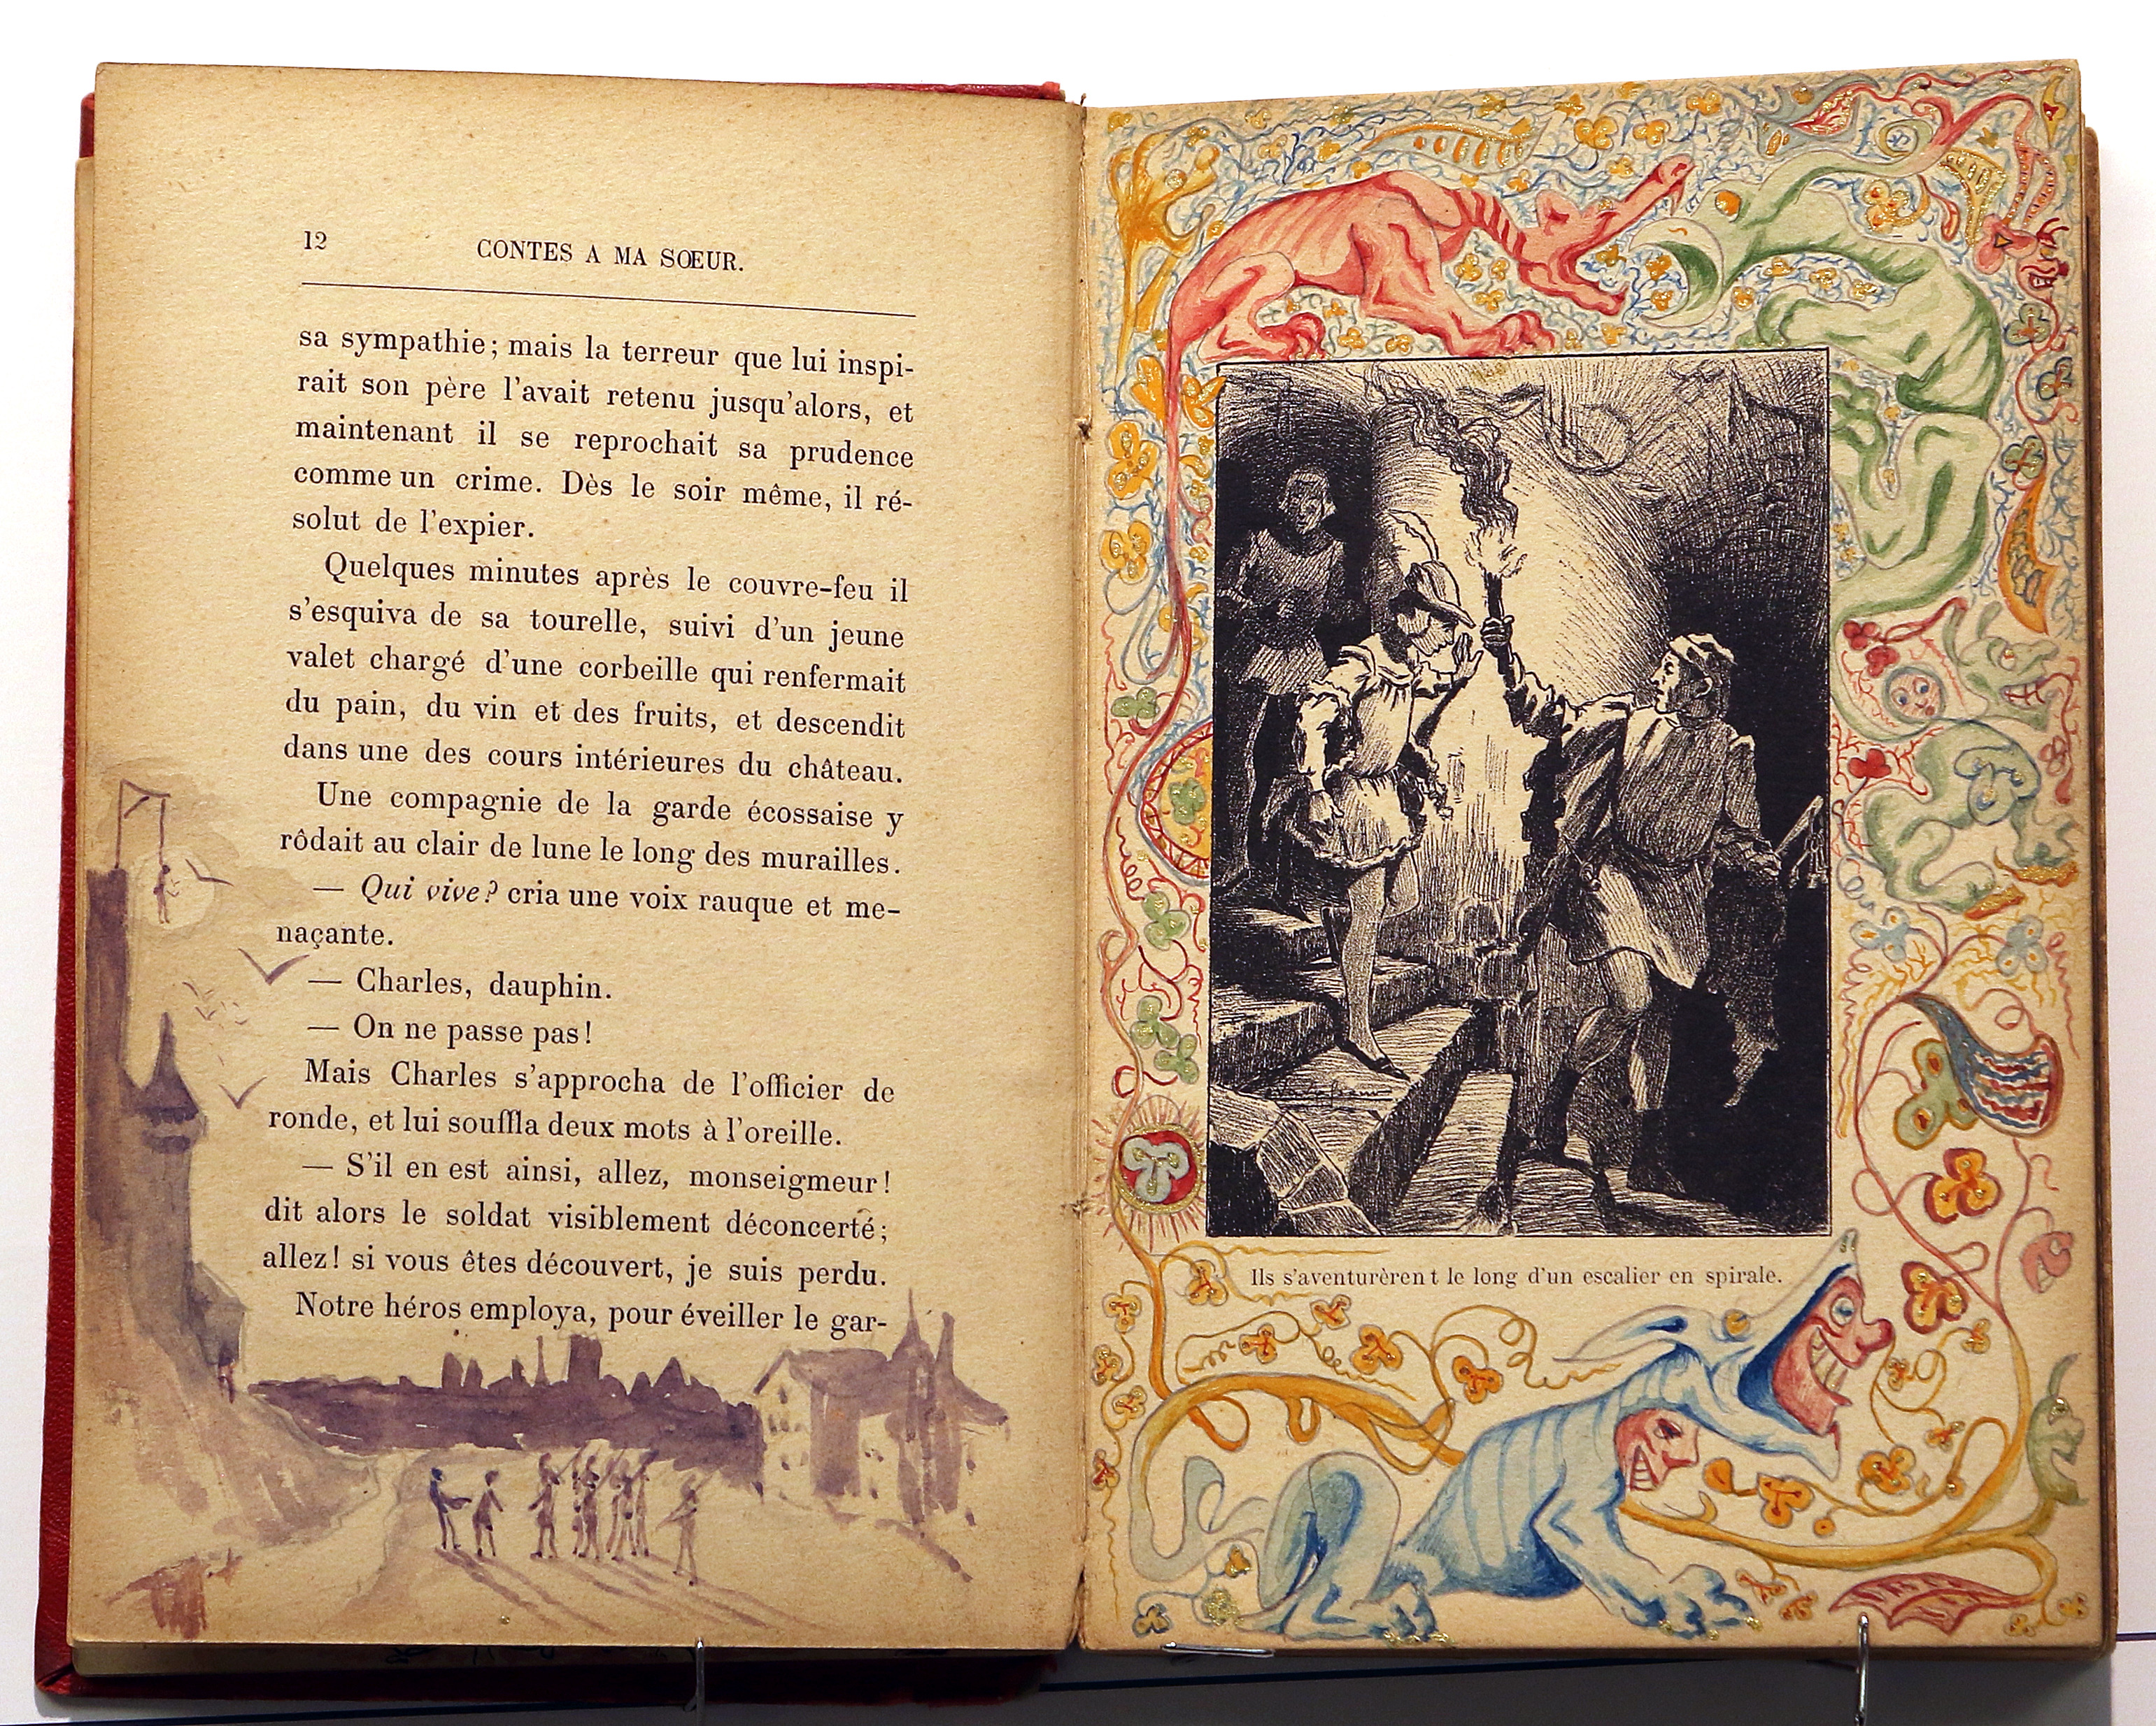 12
CONTES A MA SŒUR.
sa sympathie; mais la terreur que lui inspi-
rait son père l'avait retenu jusqu'alors, et
maintenant il se reprochait sa prudence
comme un crime. Dès le soir même, il ré-
solut de l'expier.
Quelques minutes après le couvre-feu il
s'esquiva de sa tourelle, suivi d'un jeune
valet chargé d'une corbeille qui renfermait
du pain, du vin et des fruits, et descendit
dans une des cours intérieures du château.
Une compagnie de la garde écossaise y
rôdait au clair de lune le long des murailles.
— Qui vive? cria une voix rauque et me-
naçante.
— Charles, dauphin.
— On ne passe pas!
Mais Charles s'approcha de l'officier de
ronde, et lui souffla deux mots à l'oreille.
— S'il en est ainsi, allez, monseigneur!
dit alors le soldat visiblement déconcerté;
allez! si vous êtes découvert, je suis perdu.
Notre héros employa, pour éveiller le gar-
Ils s'aventurèrent le long d'un escalier en spirale.